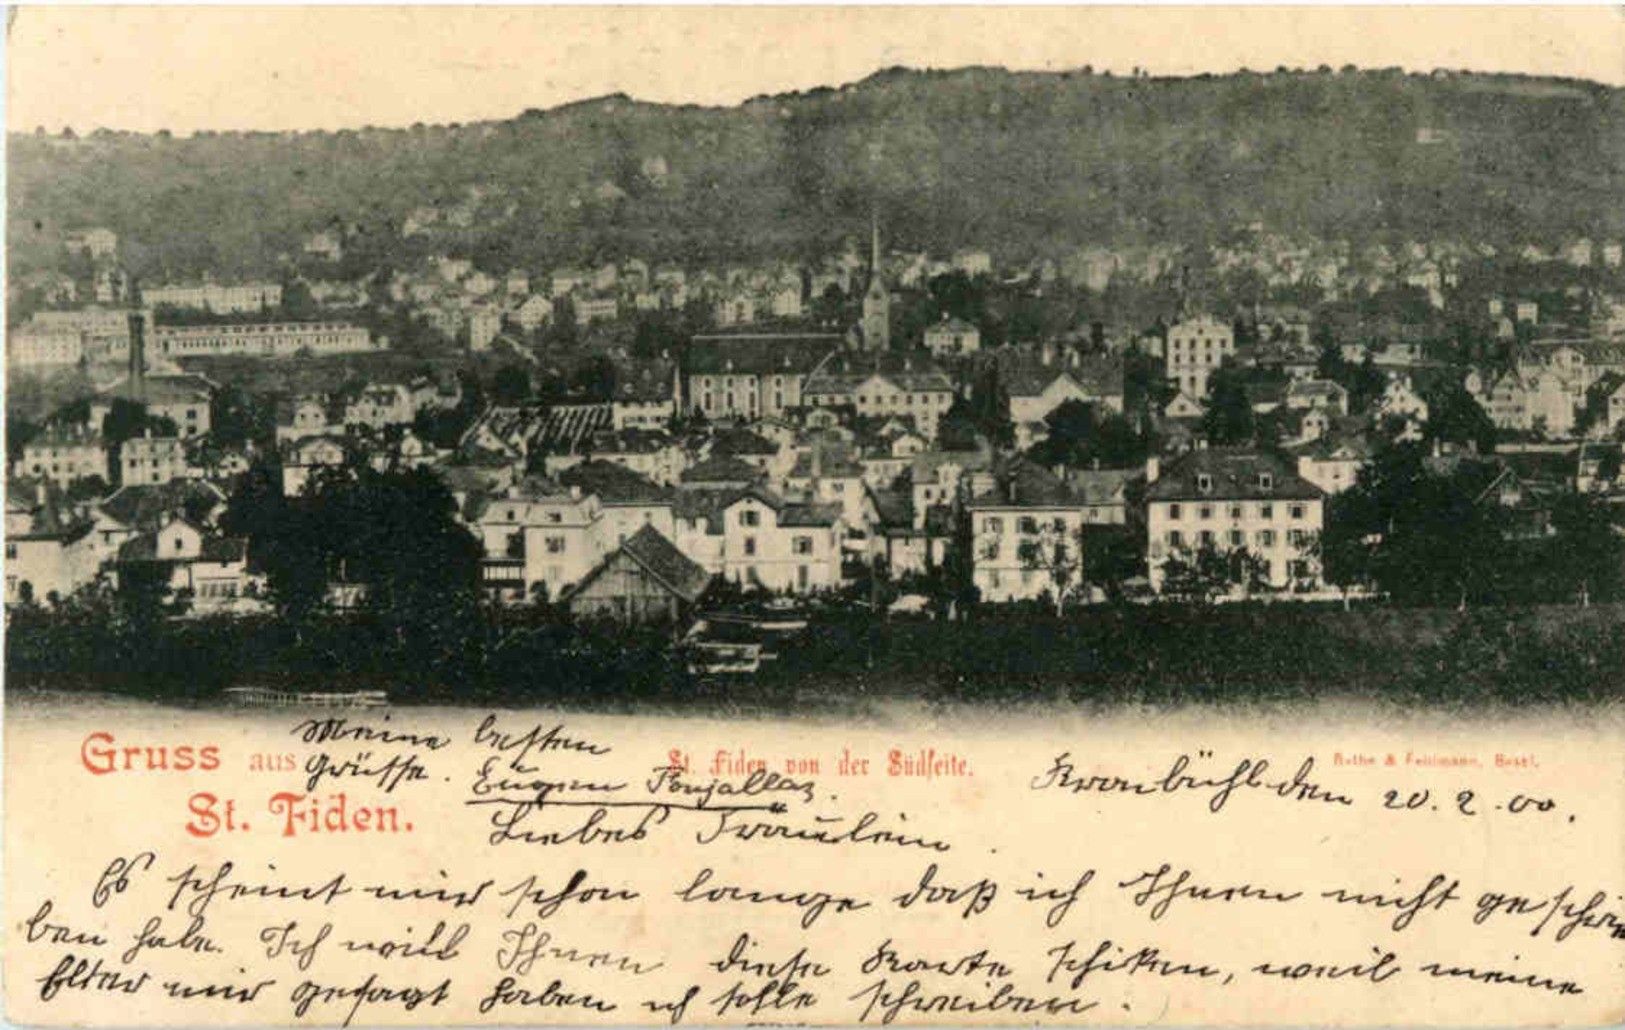 Gruss aus
St. Fiden.
St. Fiden von der Südseite.
Rathe & Fehlmann, Basel.
Meine besten
Grüsse.
Eugen Fonjallaz.
Kronbühl den 20.2.00.
Liebes Fräulein
Es scheint mir schon lange daß ich Ihnen nicht geschrie
ben habe. Ich will Ihnen diese Karte schiken, weil meine
Elter mir gesagt haben ich solle schreiben.